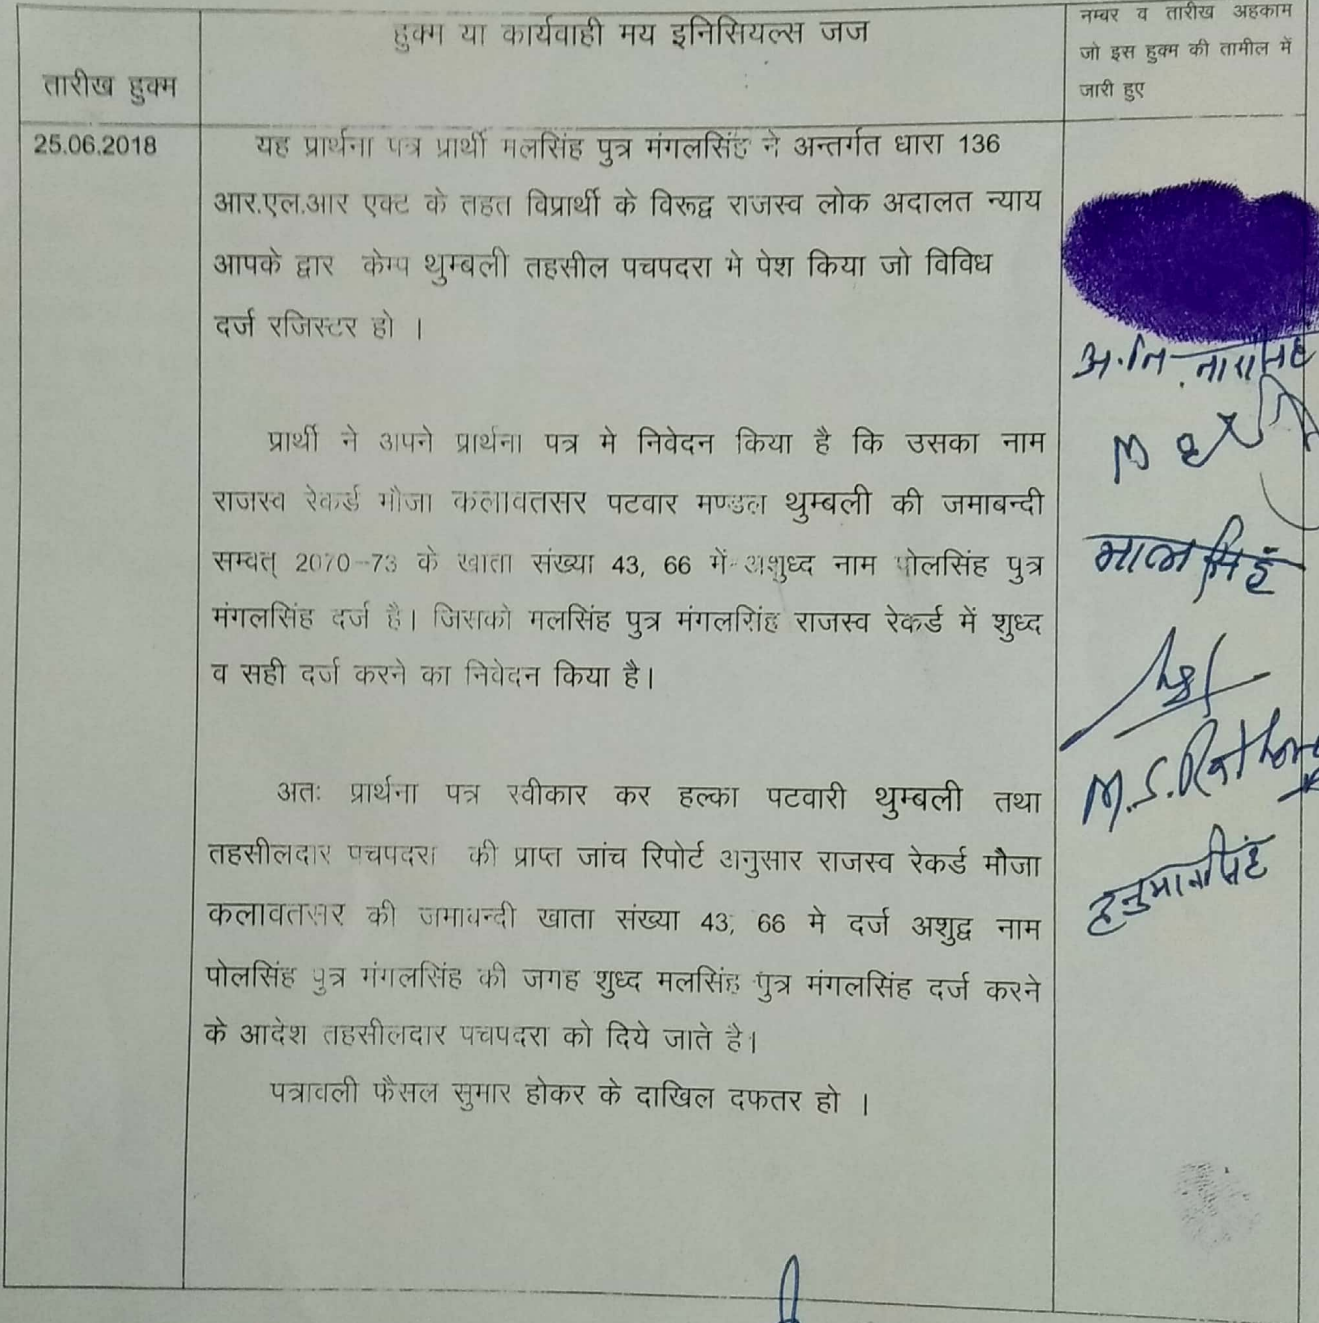 तारीख हुक्म
हुक्म या कार्यवाही मय इनिसियल्स जज
नम्बर व तारीख अहकाम
जो इस हुक्म की तामील में
जारी हुए
25.06.2018
यह प्रार्थना पत्र प्रार्थी मलसिंह पुत्र मंगलसिंह ने अन्तर्गत धारा 136
आर.एल.आर एक्ट के तहत विप्रार्थी के विरूद्व राजस्व लोक अदालत न्याय
आपके द्वार केम्प थुम्बली तहसील पचपदरा मे पेश किया जो विविध
दर्ज रजिस्टर हो ।
प्रार्थी ने अपने प्रार्थना पत्र मे निवेदन किया है कि उसका नाम
राजस्व रेकर्ड मौजा कलावतसर पटवार मण्डल थुम्बली की जमाबन्दी
सम्वत् 2070-73 के खाता संख्या 43, 66 में अशुध्द नाम पोलसिंह पुत्र
मंगलसिंह दर्ज है। जिसको मलसिंह पुत्र मंगलसिंह राजस्व रेकर्ड में शुध्द
व सही दर्ज करने का निवेदन किया है।
अतः प्रार्थना पत्र स्वीकार कर हल्का पटवारी थुम्बली तथा
तहसीलदार पचपदरा की प्राप्त जांच रिपोर्ट अनुसार राजस्व रेकर्ड मौजा
कलावतसर की जमाबन्दी खाता संख्या 43, 66 मे दर्ज अशुद्व नाम
पोलसिंह पुत्र मंगलसिंह की जगह शुध्द मलसिंह पुत्र मंगलसिंह दर्ज करने
के आदेश तहसीलदार पचपदरा को दिये जाते है।
पत्रावली फैसल सुमार होकर के दाखिल दफतर हो ।
अ.नि
M.S.Rathore
हनुमानसिंह